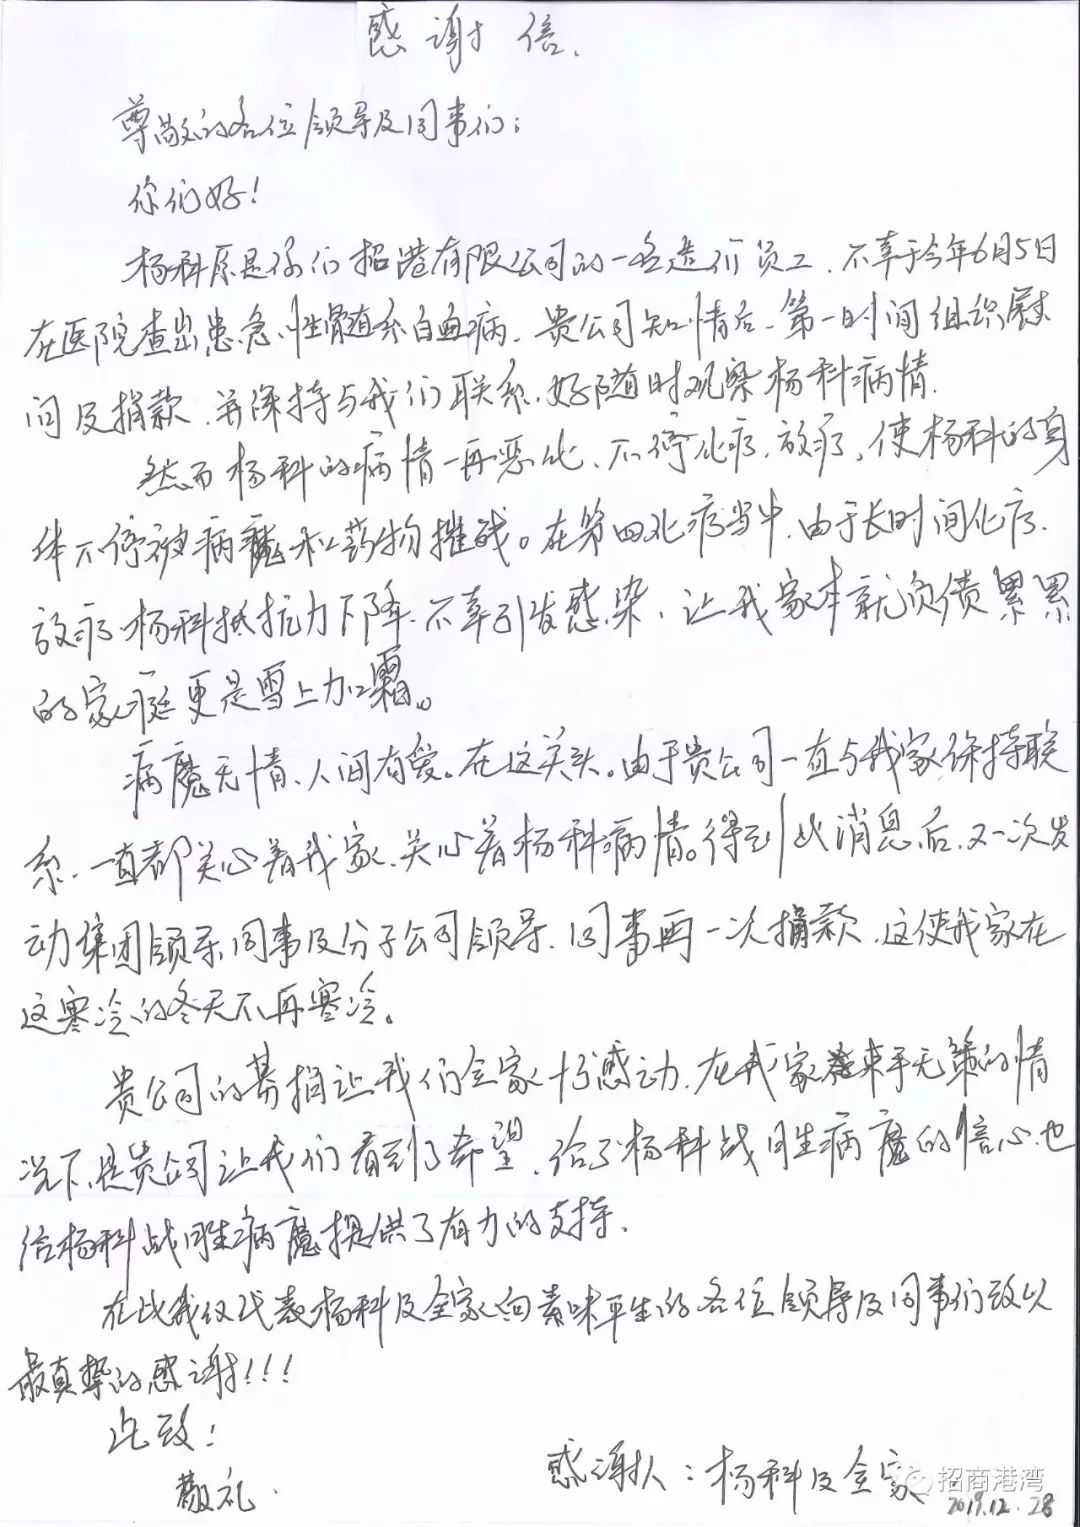 感谢信.
尊敬的各位领导及同事们：
你们好！
杨科原是你们招港有限公司的一名造价员工，不幸于今年6月5日
在医院查出患急性髓系白血病、贵公司知情后、第一时间组织慰
问及捐款，并保持与我们联系，好随时观察杨科病情.
然而杨科的病情一再恶化、不停化疗，放疗，使杨科的身
体不停被病魔和药物摧残。在第四次化疗当中，由于长时间化疗.
放疗杨科抵抗力下降.不幸引发感染，让我家本就负债累累
的家庭更是雪上加霜。
病魔无情、人间有爱。在这关头。由于贵公司一直与我家保持联
系、一直都关心着我家，关心着杨科病情。得到此消息后，又一次发
动集团领导，同事及分子公司领导、同事再一次捐款，这使我家在
这寒冷的冬天不再寒冷。
贵公司的募捐让我们全家十分感动，在我家束手无策的情
况下，是贵公司让我们看到了希望，给了杨科战胜病魔的信心，也
给杨科战胜病魔提供了有力的支持.
在此我仅代表杨科及全家向素昧平生的各位领导及同事们致以
最真挚的感谢！！！
此致！
敬礼.
感谢人：杨科及全家
招商港湾
2019.12.28